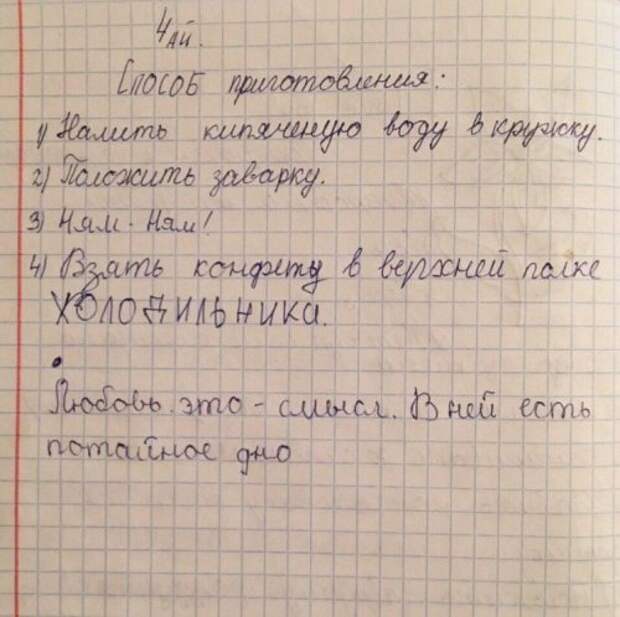 Чай.
Способ приготовления:
1) Налить кипяченую воду в кружку.
2) Положить заварку.
3) Ням - Ням!
4) Взять конфету в верхней полке
ХОЛОДИЛЬНИКА.
Любовь это - смысл. В ней есть
потайное дно